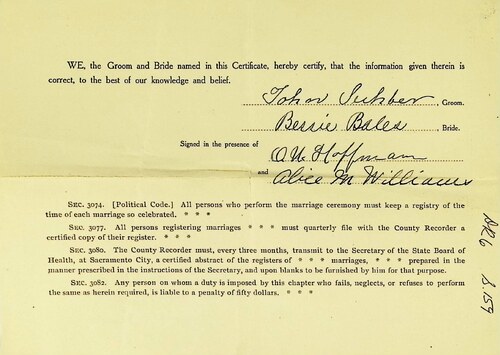 WE, the Groom and Bride named in this Certificate, hereby certify, that the information given therein is
correct, to the best of our knowledge and belief.
John , Groom.
Bessie Bales , Bride.
Signed in the presence of
O W Hoffman
and Alice M Williams
SEC. 3074. [Political Code.] All persons who perform the marriage ceremony must keep a registry of the
time of each marriage so celebrated. * * *
SEC. 3077. All persons registering marriages * * * must quarterly file with the County Recorder a
certified copy of their register. * * *
SEC. 3080. The County Recorder must, every three months, transmit to the Secretary of the State Board of
Health, at Sacramento City, a certified abstract of the registers of * * * marriages, * * * prepared in the
manner prescribed in the instructions of the Secretary, and upon blanks to be furnished by him for that purpose.
SEC. 3082. Any person on whom a duty is imposed by this chapter who fails, neglects, or refuses to perform
the same as herein required, is liable to a penalty of fifty dollars. * * *